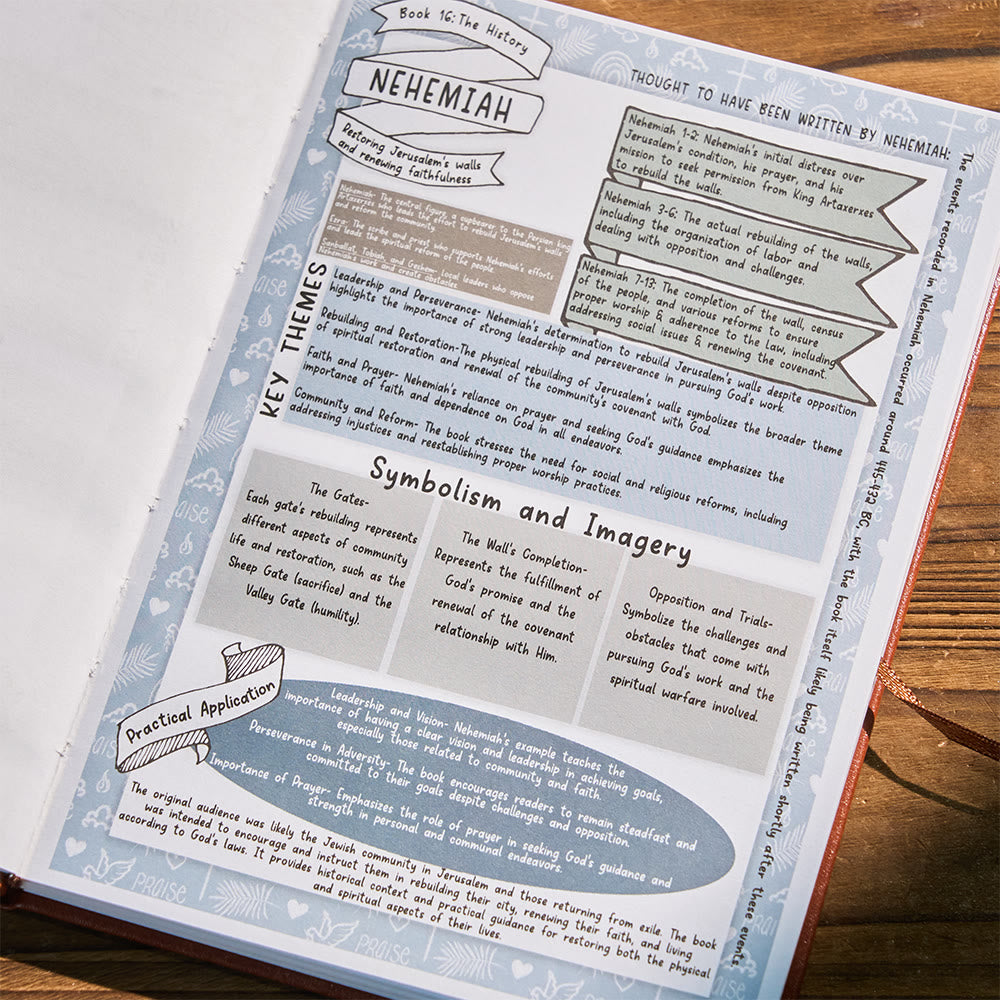 Book 16: The History
NEHEMIAH
Restoring Jerusalem's walls
and renewing faithfulness
THOUGHT TO HAVE BEEN WRITTEN BY NEHEMIAH:
The events recorded in Nehemiah occurred around 445-432 BC, with the book itself likely being written shortly after these events.
Nehemiah 1-2: Nehemiah's initial distress over
Jerusalem's condition, his prayer, and his
mission to seek permission from King Artaxerxes
to rebuild the walls.
Nehemiah 3-6: The actual rebuilding of the walls,
including the organization of labor and
dealing with opposition and challenges.
Nehemiah 7-13: The completion of the wall, census
of the people, and various reforms to ensure
proper worship & adherence to the law, including
addressing social issues & renewing the covenant.
Nehemiah- The central figure, a cupbearer to the Persian king
Artaxerxes who leads the effort to rebuild Jerusalem's walls
and reform the community.
Ezra: The scribe and priest who supports Nehemiah's efforts
and leads the spiritual reform of the people.
Sanballat, Tobiah, and Geshem: local leaders who oppose
Nehemiah's work and create obstacles.
KEY THEMES
Leadership and Perseverance- Nehemiah's determination to rebuild Jerusalem's walls despite opposition
highlights the importance of strong leadership and perseverance in pursuing God's work.
Rebuilding and Restoration-The physical rebuilding of Jerusalem's walls symbolizes the broader theme
of spiritual restoration and renewal of the community's covenant with God.
Faith and Prayer- Nehemiah's reliance on prayer and seeking God's guidance emphasizes the
importance of faith and dependence on God in all endeavors.
Community and Reform- The book stresses the need for social and religious reforms, including
addressing injustices and reestablishing proper worship practices.
Symbolism and Imagery
The Gates-
Each gate's rebuilding represents
different aspects of community
life and restoration, such as the
Sheep Gate (sacrifice) and the
Valley Gate (humility).
The Wall's Completion-
Represents the fulfillment of
God's promise and the
renewal of the covenant
relationship with Him.
Opposition and Trials-
Symbolize the challenges and
obstacles that come with
pursuing God's work and the
spiritual warfare involved.
Practical Application
Leadership and Vision- Nehemiah's example teaches the
importance of having a clear vision and leadership in achieving goals,
especially those related to community and faith.
Perseverance in Adversity- The book encourages readers to remain steadfast and
committed to their goals despite challenges and opposition.
Importance of Prayer- Emphasizes the role of prayer in seeking God's guidance and
strength in personal and communal endeavors.
The original audience was likely the Jewish community in Jerusalem and those returning from exile. The book
was intended to encourage and instruct them in rebuilding their city, renewing their faith, and living
according to God's laws. It provides historical context and practical guidance for restoring both the physical
and spiritual aspects of their lives.
PRAISE
PRAISE